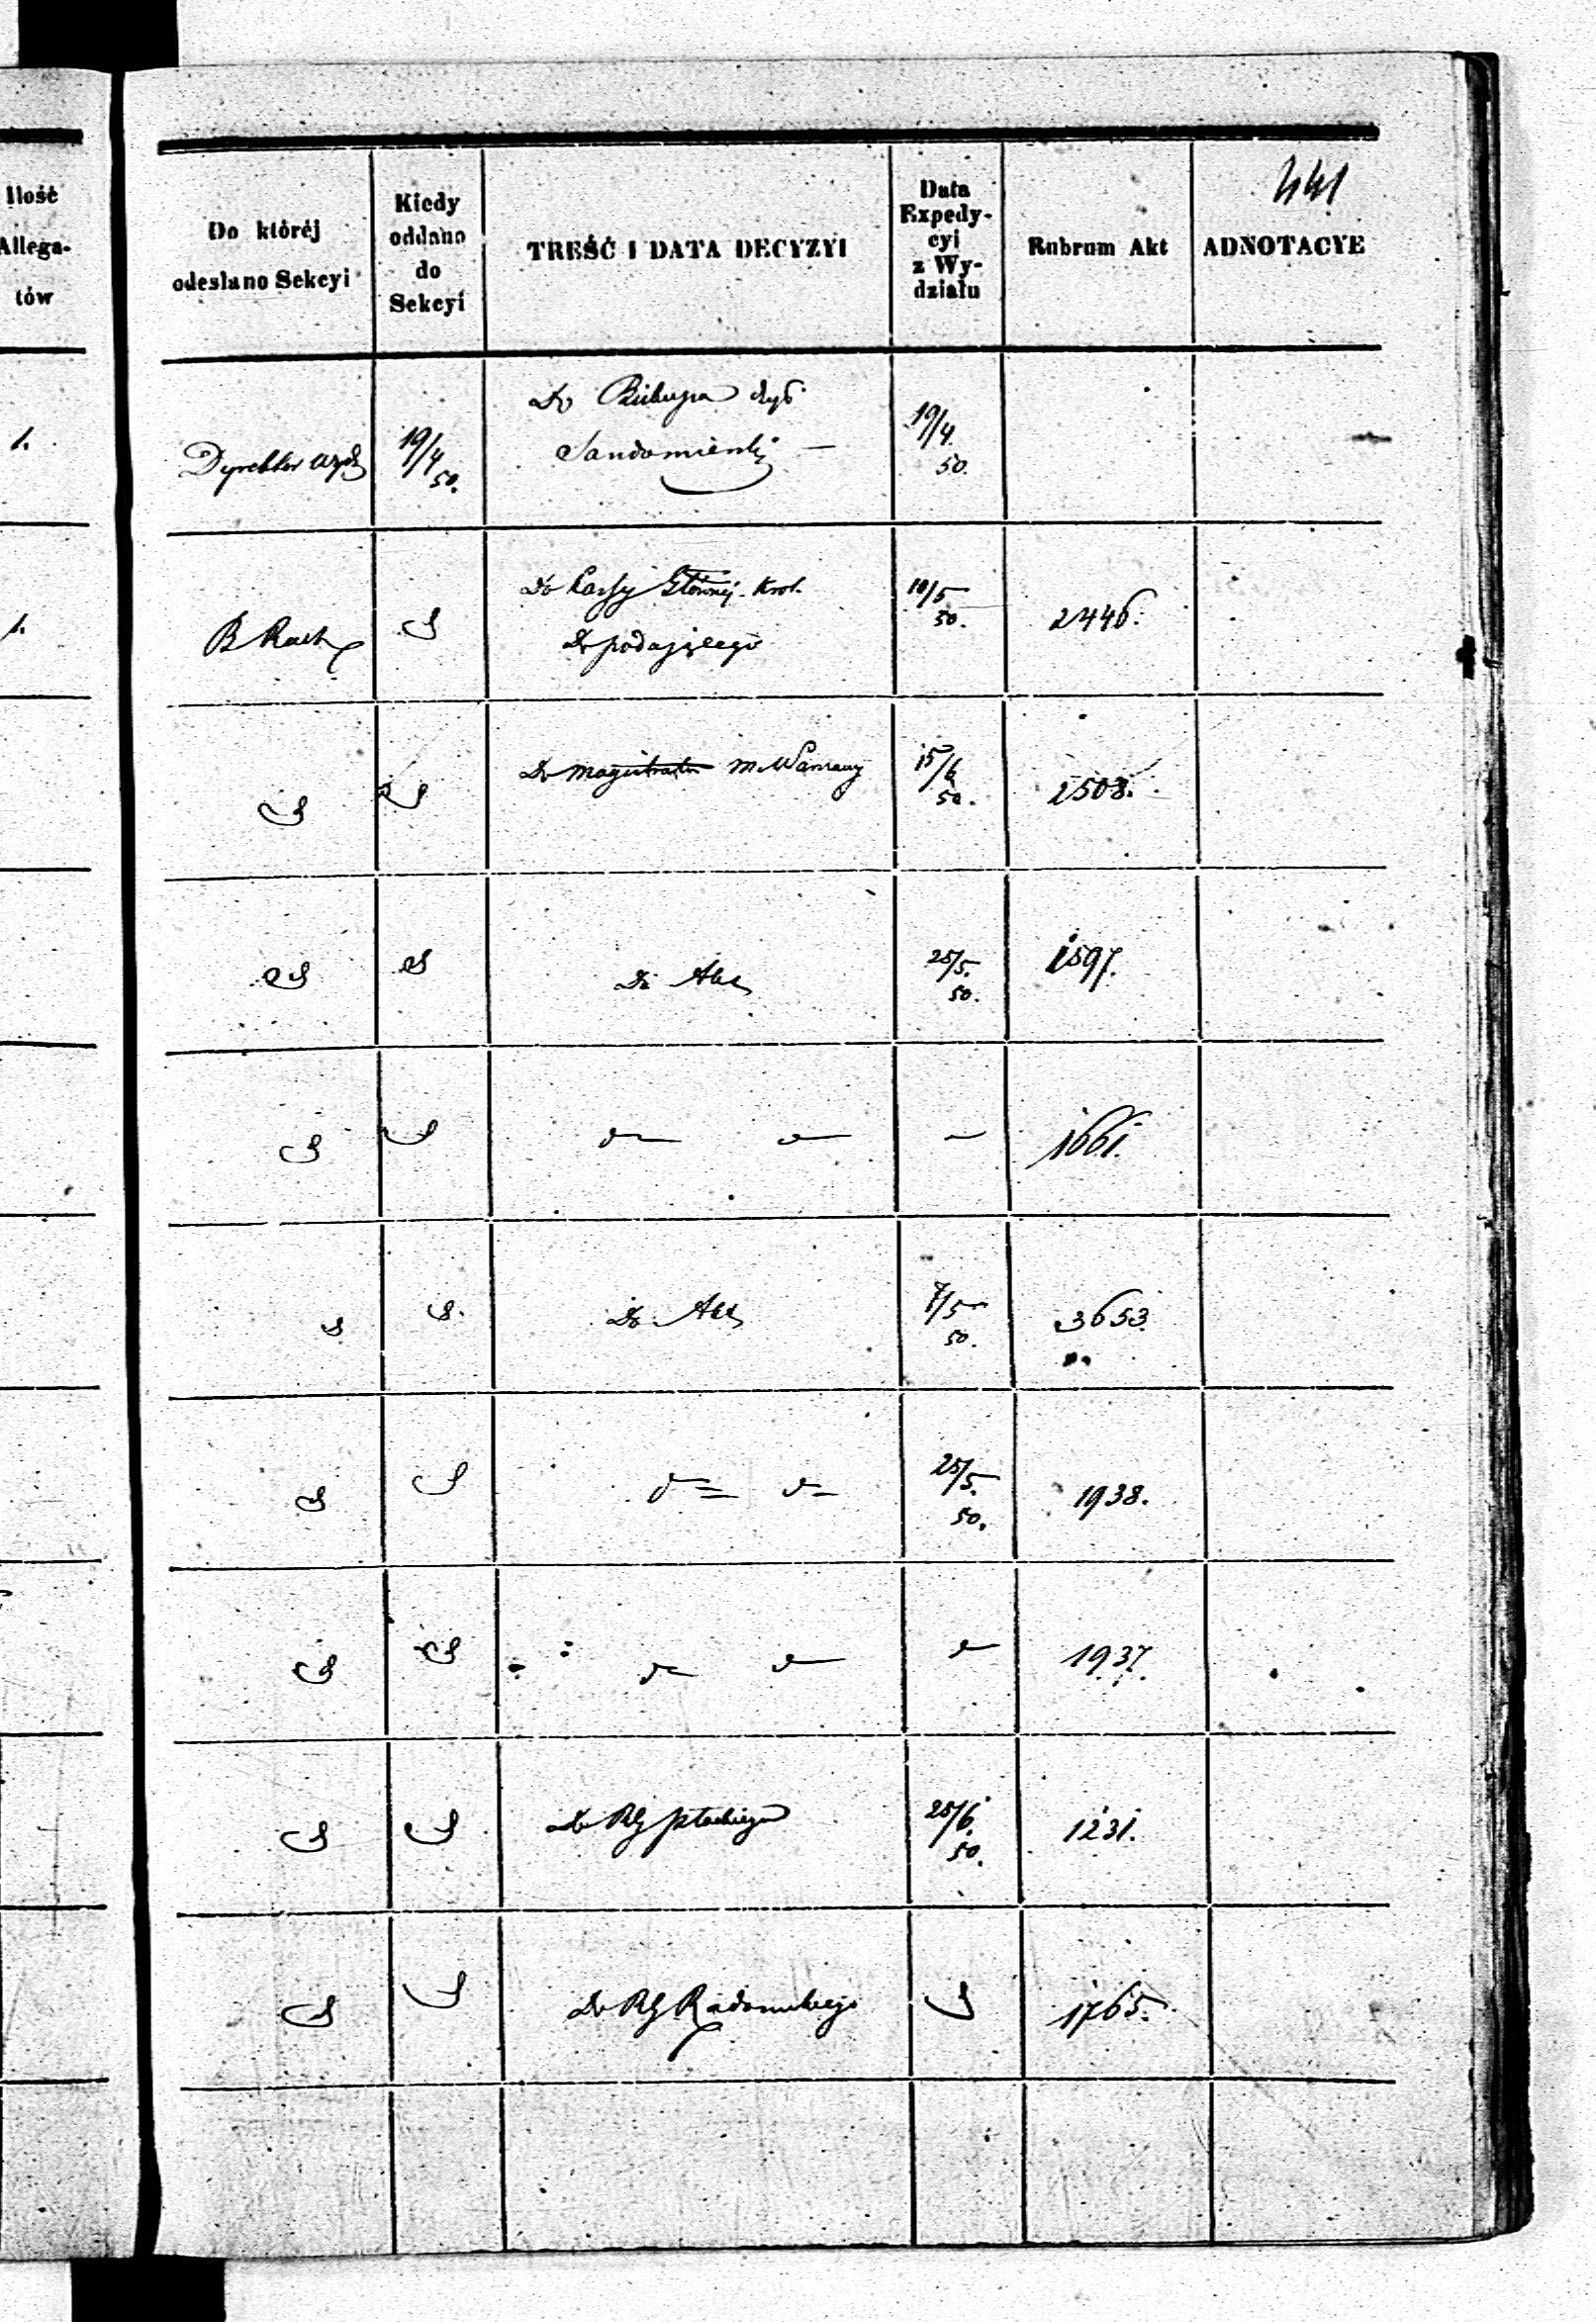 441
Ilość
Allega-
tów
Do któréj
odesłano Sekcyi
Kiedy
oddano
do
Sekcyi
TREŚĆ I DATA DECYZYI
Data
Expedy-
cyi
z Wy-
działu
Rubrum Akt
ADNOTACYE
1.
Dyrektor
19/4
50.
Do Biskupa
Sandomierski
19/4.
50.
1.
B Rach
Do Kassy Głównej Krol.
Do podającego
10/5
50.
2446.
Do Magistratu M. Warszawy
15/6
50.
2508.
Do Akt
25/5.
50.
1597.
1661.
Do Akt
7/5
50.
3653.
25/5.
50.
1938.
1937.
Do RG płockiego
25/6.
50.
1231.
Do RG Radomskiego
1765.